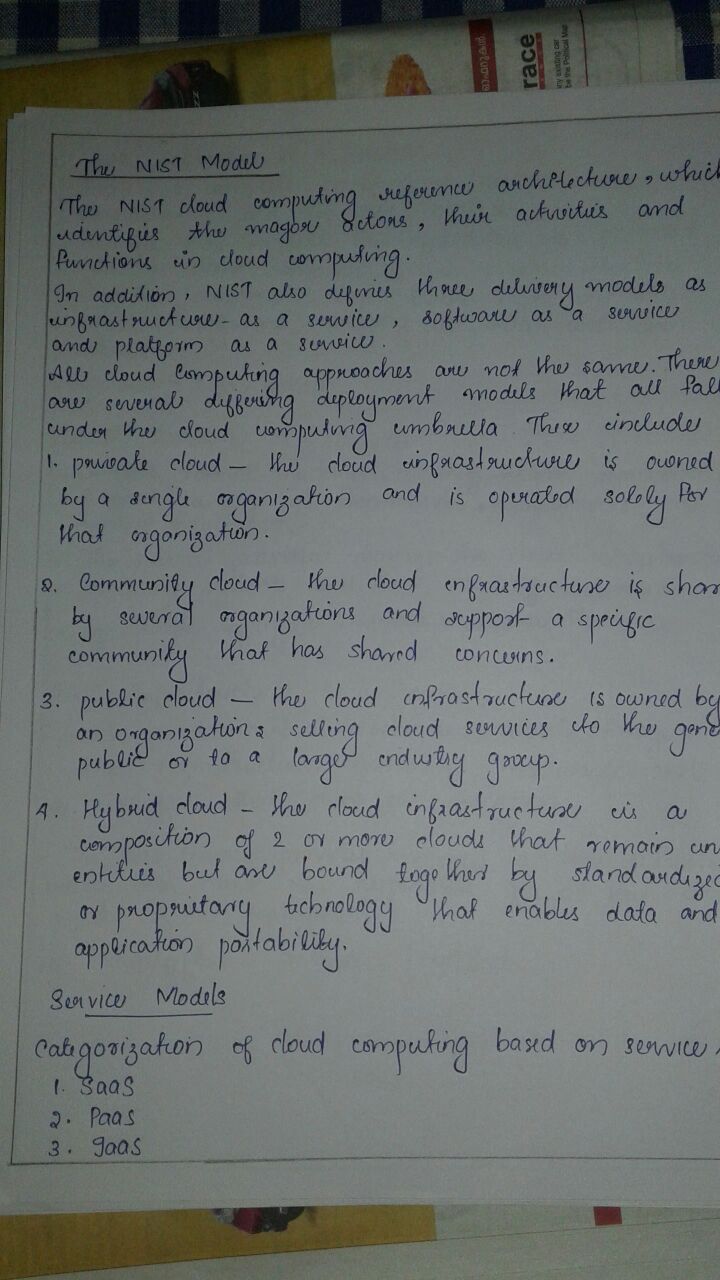 race
ny existing car
be the Political Map
The NIST Model
The NIST cloud computing reference architecture, which
identifies the magor actors, their activities and
functions in cloud computing.
In addition, NIST also defines three delivery models as
infrastructure- as a service, software as a service
and platform as a service.
All cloud Computing approaches are not the same. There
are several differing deployment models that all fall
under the cloud computing umbrella These include
1. private cloud – the cloud infrastructure is owned
by a single organization and is operated solely for
that organization.
2. Community cloud – the cloud infrastructure is shar
by several organizations and support a specific
community that has shared concerns.
3. public cloud – the cloud infrastructure is owned by
an organization selling cloud services to the gene
public or to a larger industry group.
4. Hybrid cloud – the cloud infrastructure is a
composition of 2 or more clouds that remain un
entities but are bound together by standardized
or proprietary technology that enables data and
application portability.
Service Models
Categorization of cloud computing based on service
1. SaaS
2. Paas
3. IaaS